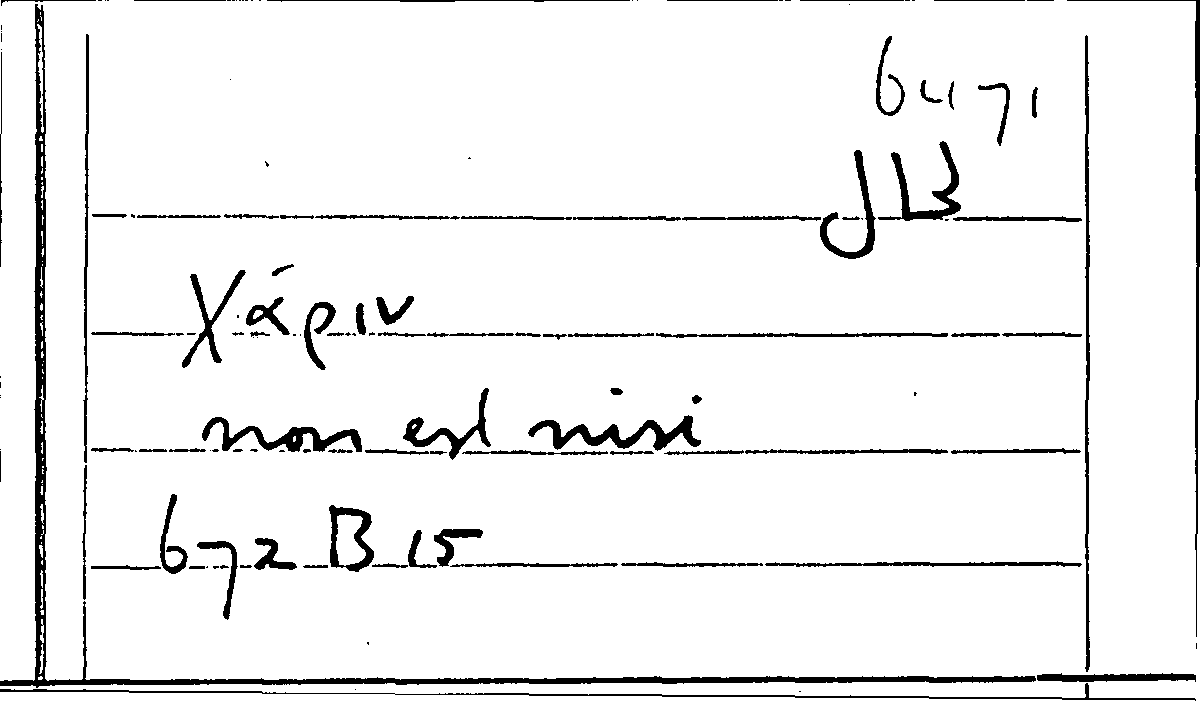 JB
χάριν
non est nisi
672 B 15